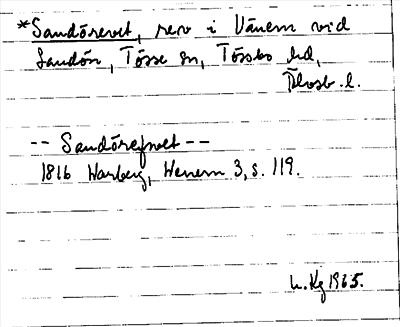 *Sandörevet, rev i Vänern vid
Sandön, Tösse sn, Tössbo hd,
Älvsb. l.
-- Sandörefvet --
1816 Warberg, Wenern 3, s. 119.
L. Kg 1965.